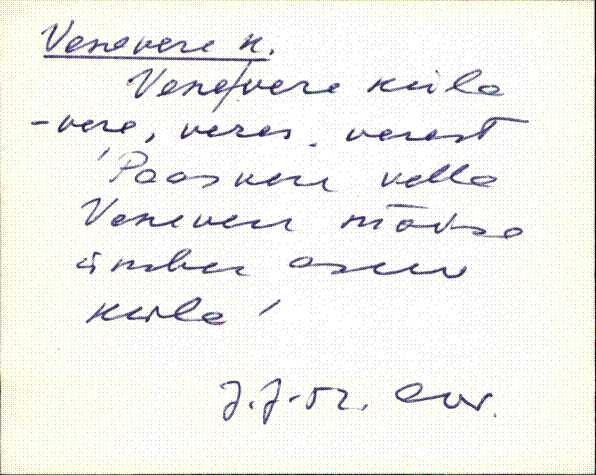 Venevere k.
Vene/vere küla
-vere, veres, verest
'Paasvere valla
Venevere mõisa
ümber asuv
küla'
J.J-52.